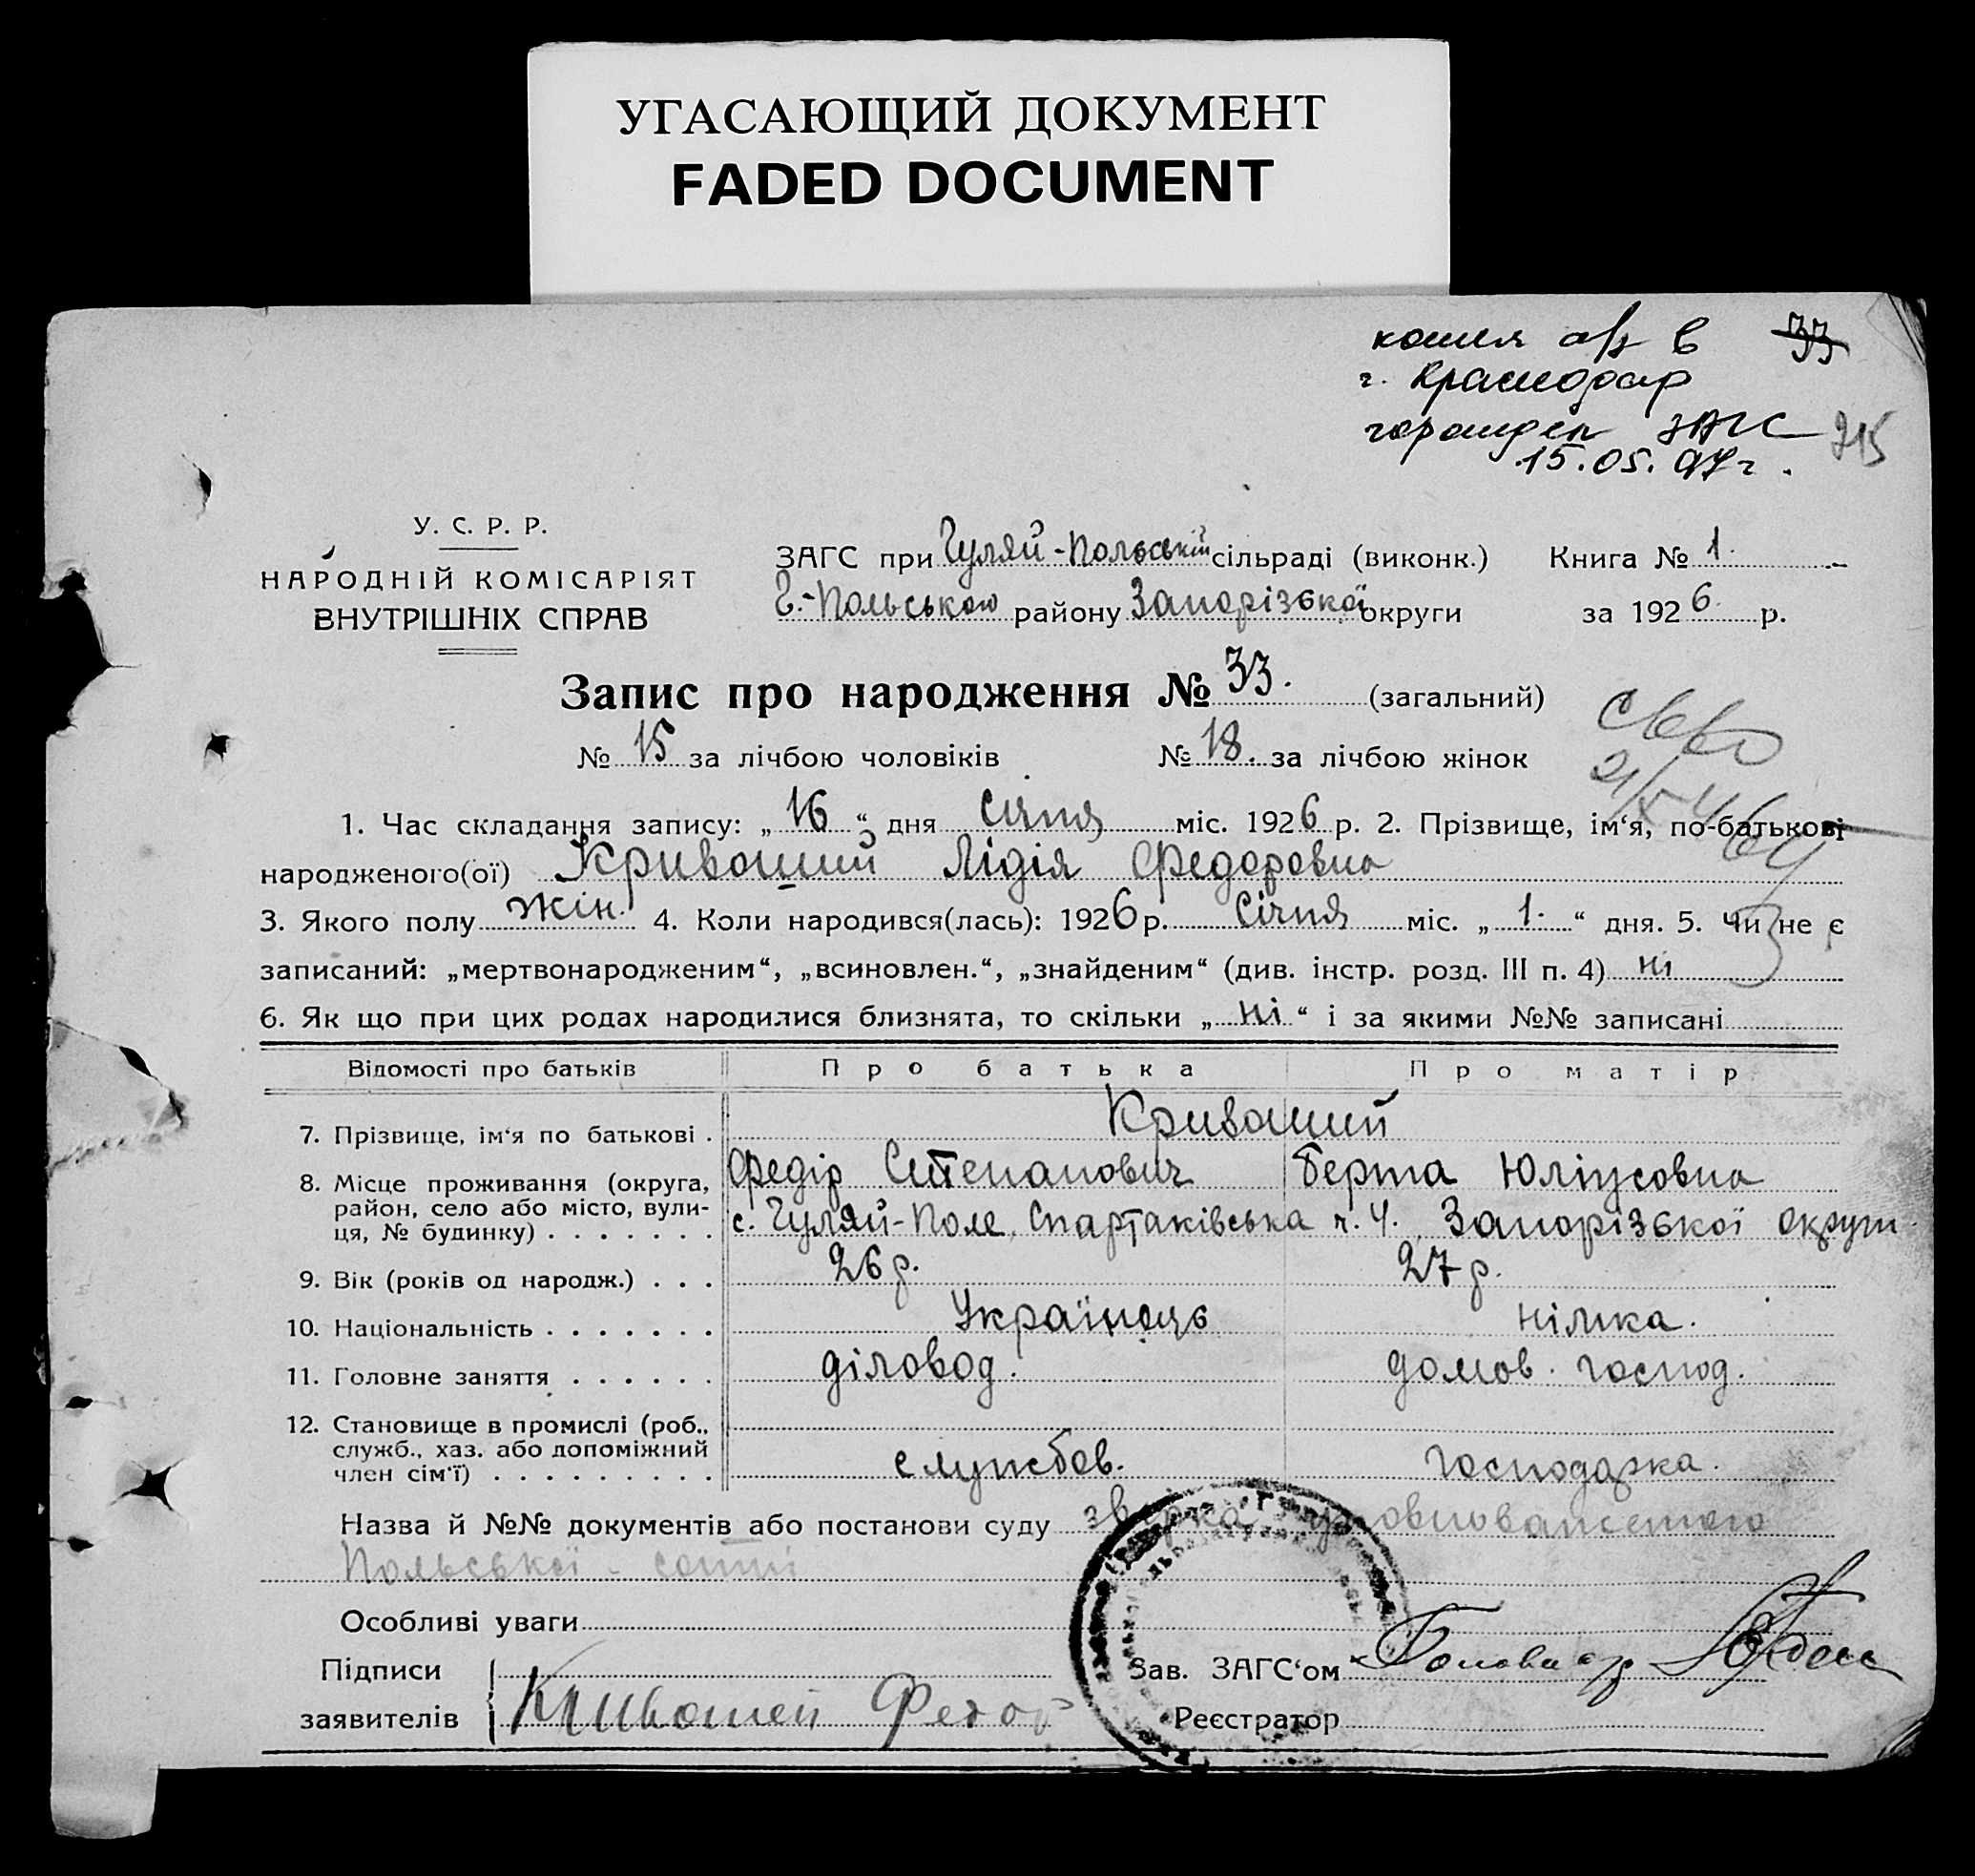 УГАСАЮЩИЙ ДОКУМЕНТ
FADED DOCUMENT
копия а/з в 33
г. Краснодар
горотдел ЗАГС 215
15.05.97 г.
У. С. Р. Р.
НАРОДНІЙ КОМІСАРІЯТ
ВНУТРІШНІХ СПРАВ
ЗАГС при Гуляй-Польській сільраді (виконк.) Книга № 1.
Г.-Польського району Запорізької округи за 1926 р.
Запис про народження № 33. (загальний)
№ 15 за лічбою чоловіків № 18. за лічбою жінок
1. Час складання запису: „16“ дня Січня міс. 1926 р. 2. Прізвище, ім‘я, по-батькові
народженого(ої) Кривоший Лідія Федоровна
3. Якого полу жін. 4. Коли народився(лась): 1926 р. Січня міс. „1.“ дня. 5. Чи не є
записаний: „мертвонародженим“, „всиновлен.“, „знайденим“ (див. інстр. розд. III п. 4) ні
6. Як що при цих родах народилися близнята, то скільки „ні“ і за якими №№ записані
Відомості про батьків Про батька Про матір
7. Прізвище, ім‘я по батькові . Кривоший
Федір Степанович Берта Юліусовна
8. Місце проживання (округа,
район, село або місто, вули-
ця, № будинку) . . . . . . . с. Гуляй-Поле, Спартаківська ч. 4. Запорізької округи
9. Вік (років од народж.) . . . 26 р. 27 р.
10. Національність . . . . . . . Українець німка.
11. Головне заняття . . . . . . діловод. домов. господ.
12. Становище в промислі (роб.,
служб., хаз. або допоміжний
член сім‘ї) . . . . . . . . . службов. господарка.
Назва й №№ документів або постанови суду
Польської
Особливі уваги
Підписи
заявителів Кривошей Федор
Зав. ЗАГС‘ом
Реєстратор